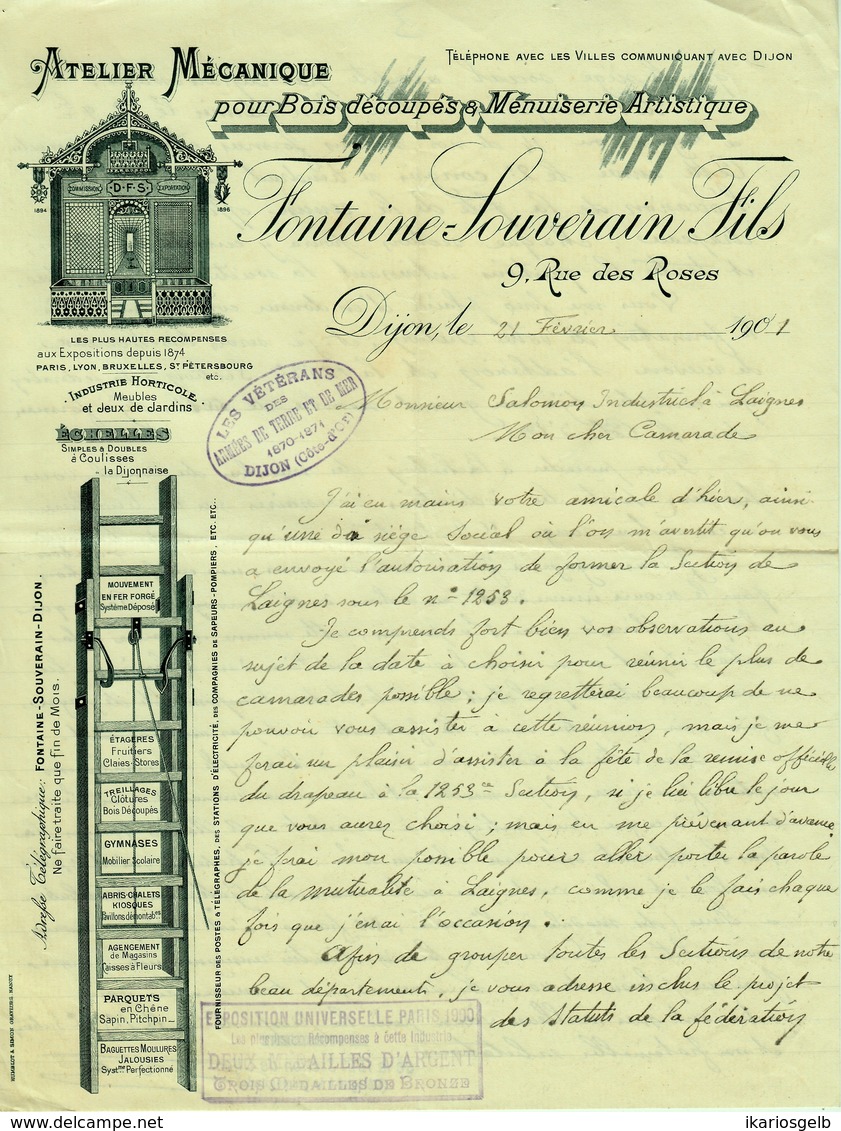 ATELIER MÉCANIQUE
TÉLÉPHONE AVEC LES VILLES COMMUNIQUANT AVEC DIJON
pour Bois découpés & Menuiserie Artistique
Fontaine-Souverain Fils
9, Rue des Roses
Dijon, le 21 Février 1901
COMMISSION
D.F.S
EXPORTATION
1894
1896
LES PLUS HAUTES RECOMPENSES
aux Expositions depuis 1874
PARIS, LYON, BRUXELLES, ST PÉTERSBOURG
etc.
INDUSTRIE HORTICOLE
Meubles
et Jeux de Jardins
ÉCHELLES
SIMPLES & DOUBLES
à Coulisses
la Dijonnaise
LES VÉTÉRANS
DES
ARMÉES DE TERRE ET DE MER
1870-1871
DIJON (Côte-d'Or)
Monsieur Salomon Industriel à Laignes
Mon cher Camarade
J'ai en mains votre amicale d'hier, ainsi
qu'une du siége Social où l'on m'avertit qu'on vous
a envoyé l'autorisation de former la Section de
Laignes sous le no 1253.
Je comprends fort bien vos observations au
sujet de la date à choisir pour réunir le plus de
camarades possible; je regretterai beaucoup de ne
pouvoir vous assister à cette réunion, mais je me
ferai un plaisir d'assister à la fête de la remise officielle
du drapeau à la 1253ce Section, si je suis libre le jour
que vous aurez choisi; mais en me prévenant d'avance,
je frai mon possible pour aller porter la parole
de la mutualité à Laignes, comme je le fais chaque
fois que j'en ai l'occasion.
Afin de grouper toutes les Sections de notre
beau département, je vous adresse inclus le projet
des Statuts de la fédération
MOUVEMENT
EN FER FORGÉ
Système Déposé
ÉTAGÈRES
Fruitiers
Claies-Stores
TREILLAGES
Clôtures
Bois Découpés
GYMNASES
Mobilier Scolaire
ABRIS-CHALETS
KIOSQUES
Pavillons démontab.es
AGENCEMENT
de Magasins
Caisses à Fleurs
PARQUETS
en Chêne
Sapin, Pitchpin
BAGUETTES MOULURES
JALOUSIES
Syst.me Perfectionné
Adresse Télégraphique: FONTAINE-SOUVERAIN-DIJON.
Ne faire traite que fin de Mois.
FOURNISSEUR DES POSTES & TÉLÉGRAPHES, DES STATIONS D'ÉLECTRICITÉ, DES COMPAGNIES DE SAPEURS-POMPIERS, ETC. ETC.
HUMBLOT & SIMON GRAVEURS NANCY
EXPOSITION UNIVERSELLE PARIS 1900
Les plus hautes Récompenses à cette Industrie
DEUX MÉDAILLES D'ARGENT
TROIS MÉDAILLES DE BRONZE
delcampe.net
ikariosgelb